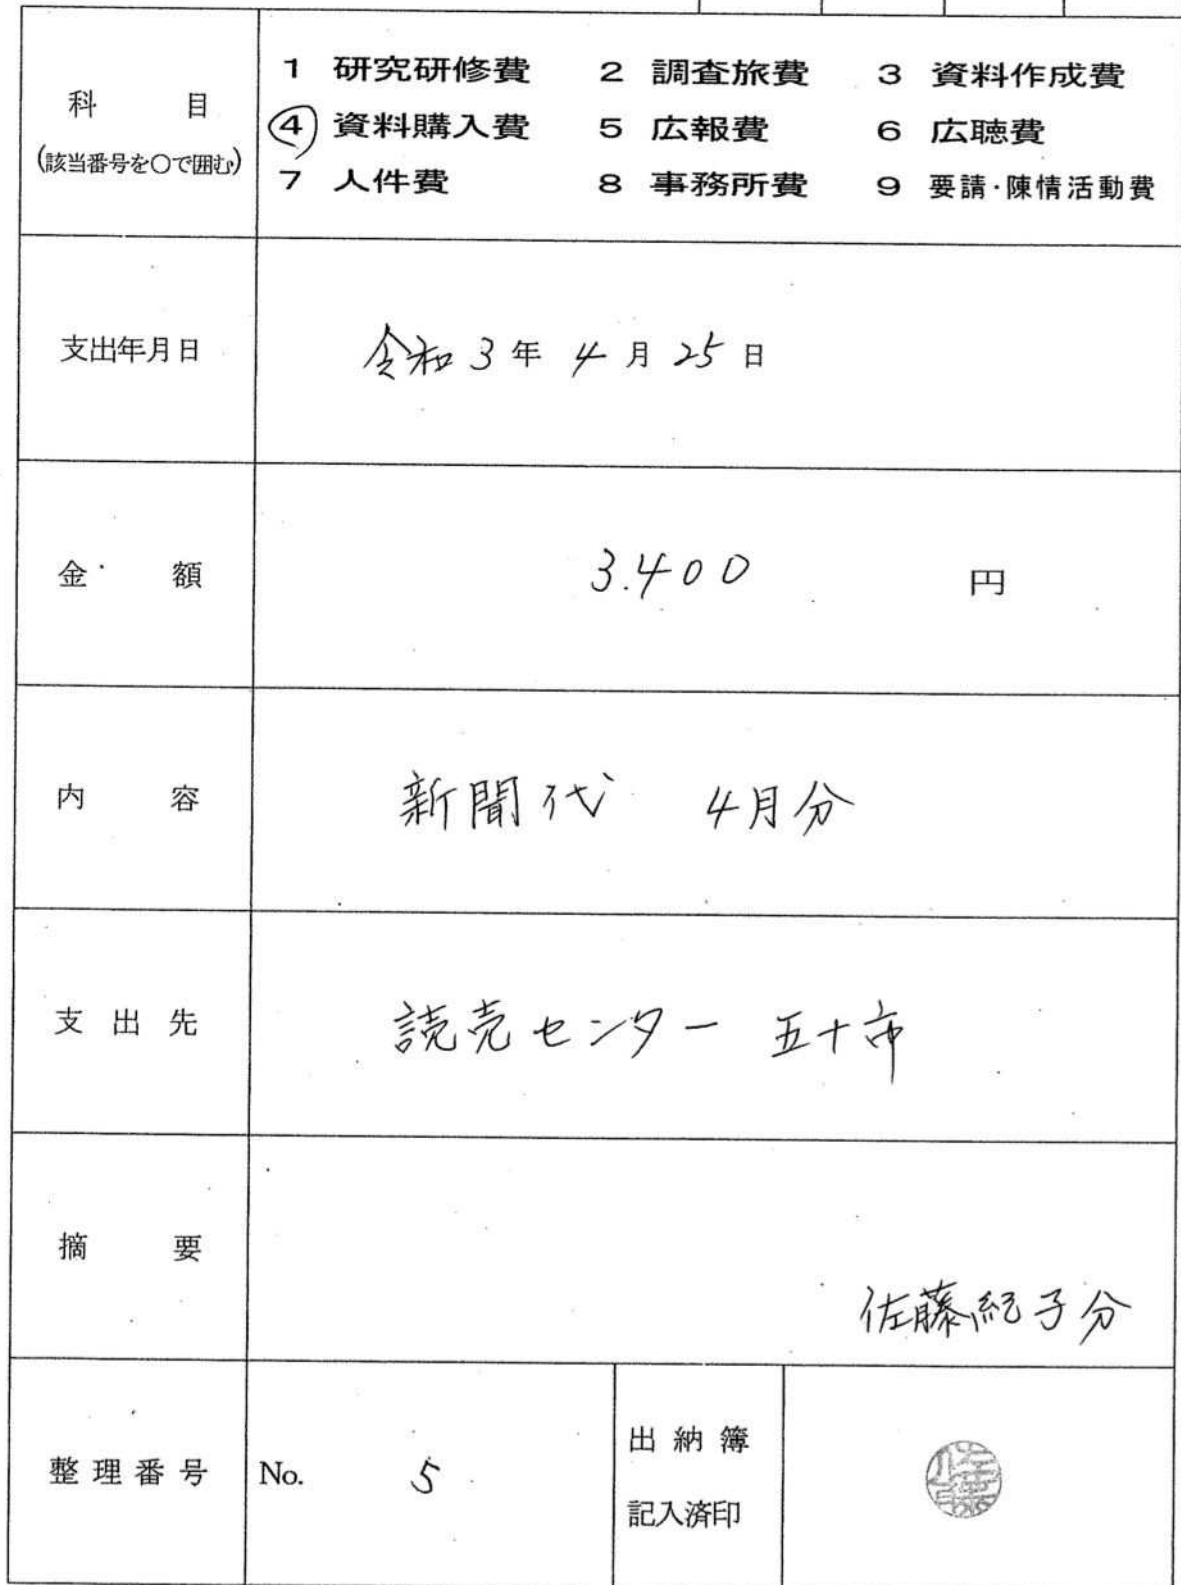 科 目
(該当番号を〇で囲む)
1 研究研修費 2 調査旅費 3 資料作成費
4 資料購入費 5 広報費 6 広聴費
7 人件費 8 事務所費 9 要請・陳情活動費
支出年月日 令和3年 4月25日
金 額 3.400 円
内 容 新聞代 4月分
支出先 読売センター 五十市
摘 要
佐藤紀子分
整理番号 No. 5
出納簿
記入済印
佐藤